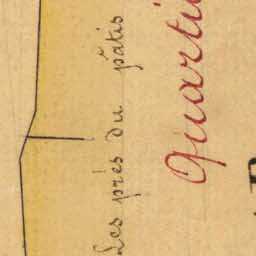 Les prés du pâtis
Quarti